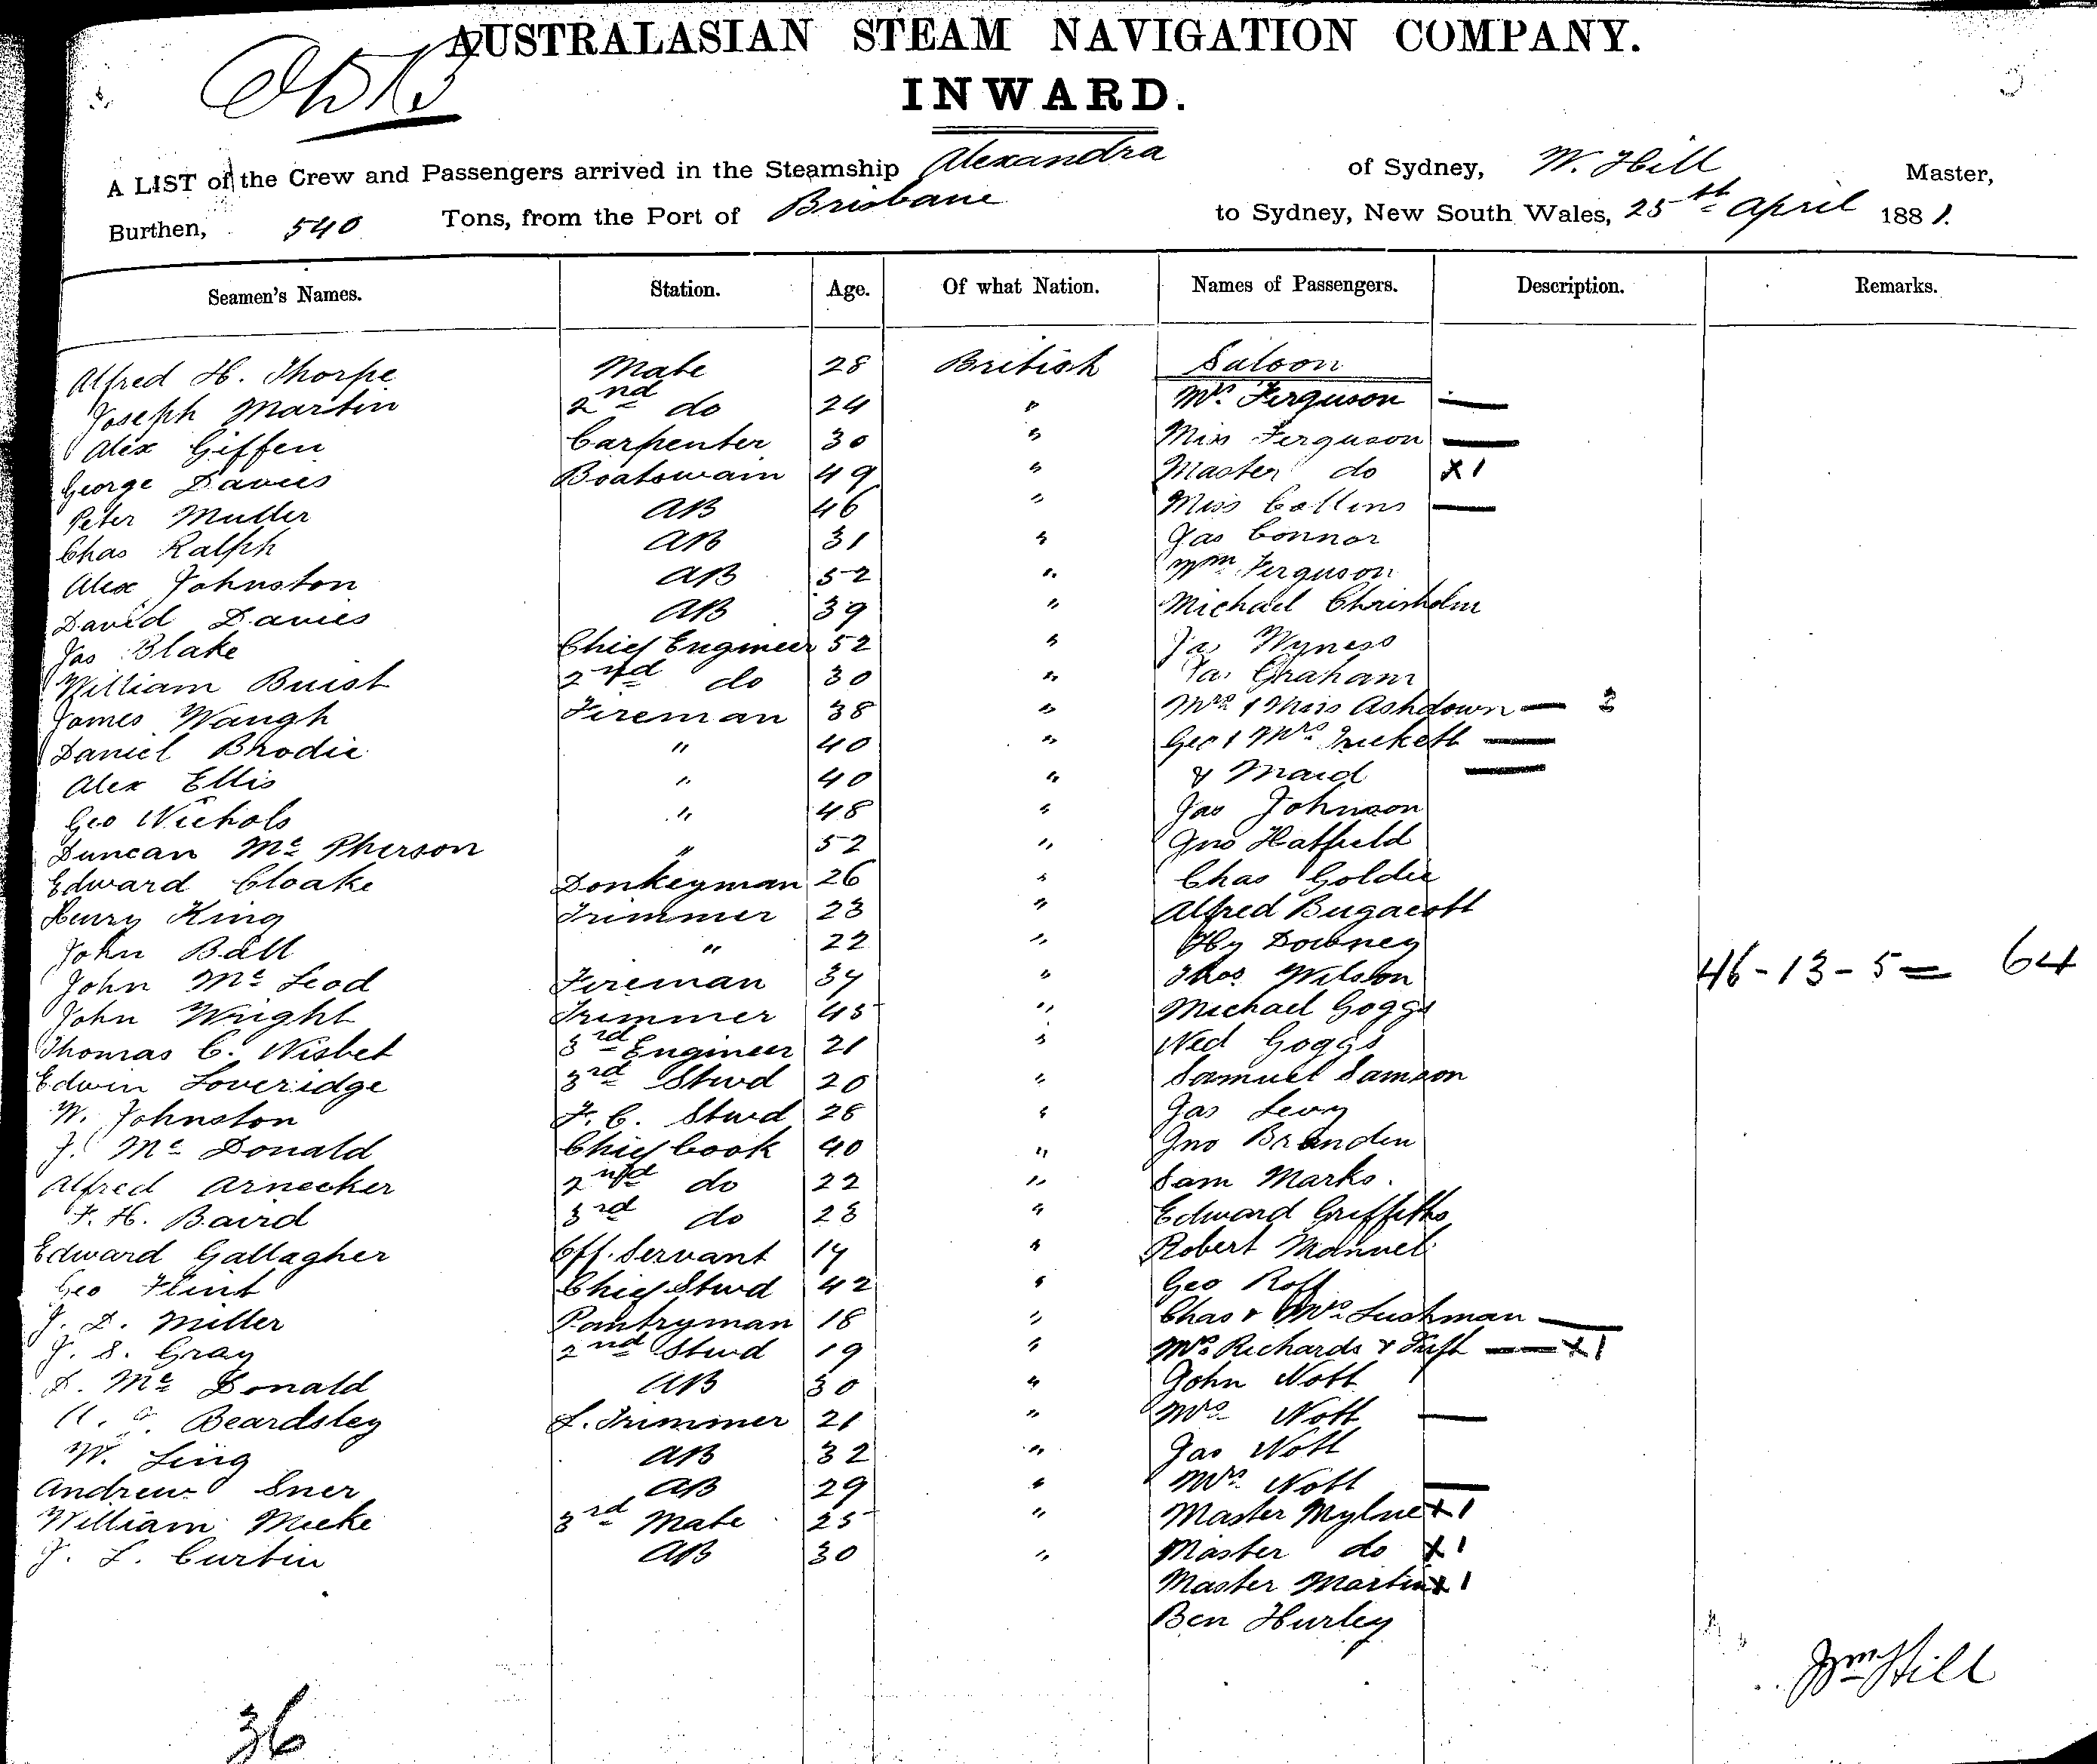 AUSTRALASIAN STEAM NAVIGATION COMPANY.
INWARD.
A LIST of the Crew and Passengers arrived in the Steamship Alexandra of Sydney, W. Hill Master,
Burthen, 540 Tons, from the Port of Brisbane to Sydney, New South Wales, 25th April 1881.
Seamen's Names. Station. Age. Of what Nation. Names of Passengers. Description. Remarks.
Alfred H. Thorpe Mate 28 British Saloon
Joseph Martin 2nd do 24 " Mrs. Ferguson —
Alex Giffen Carpenter 30 " Miss Ferguson —
George Davies Boatswain 49 " Master do X1
Peter Muller AB 46 " Miss Collins —
Chas Ralph AB 31 " Jas Connor
Alex Johnston AB 52 " Wm Ferguson
David Davies AB 39 " Michael Chrisholm
Jas Blake Chief Engineer 52 " Jas Wyness
William Buist 2nd do 30 " Jas Graham
James Waugh Fireman 38 " Mrs & Miss Ashdown — 2
Daniel Brodie " 40 " Geo & Mrs Trickett —
Alex Ellis " 40 " & Maid —
Geo Nichols " 48 " Jas Johnson
Duncan Mc Pherson " 52 " Jno Hatfield
Edward Cloake Donkeyman 26 " Chas Goldie
Harry King Trimmer 23 " Alfred Bugacott
John Ball " 22 " Hy Downey
John Mc Leod Fireman 37 " Thos Wilson 46-13-5= 64
John Wright Trimmer 45 " Michael Goggs
Thomas C. Nisbet 3rd Engineer 21 " Ned Goggs
Edwin Loveridge 3rd Stwd 20 " Samuel Samson
W. Johnston F. C. Stwd 28 " Jas Levy
J. Mc Donald Chief Cook 40 " Jno Branden
Alfred Arnecker 2nd do 22 " Sam Marks.
F. H. Baird 3rd do 23 " Edward Griffiths
Edward Gallagher Off. Servant 17 " Robert Manuel
Geo Flint Chief Stwd 42 " Geo Roff
J. D. Miller Pantryman 18 " Chas & Mrs Lushman —
J. S. Gray 2nd Stwd 19 " Mrs Richards & Inft — X1
D. Mc Donald AB 30 " John Nott
Beardsley L. Trimmer 21 " Mrs Nott —
W. Ling AB 32 " Jas Nott
Andrew Sner AB 29 " Mrs Nott —
William Meeke 3rd Mate 25 " Master Mylne X1
J. L. Curtin AB 30 " Master do X1
Master Martin X1
Ben Hurley
Wm Hill
36